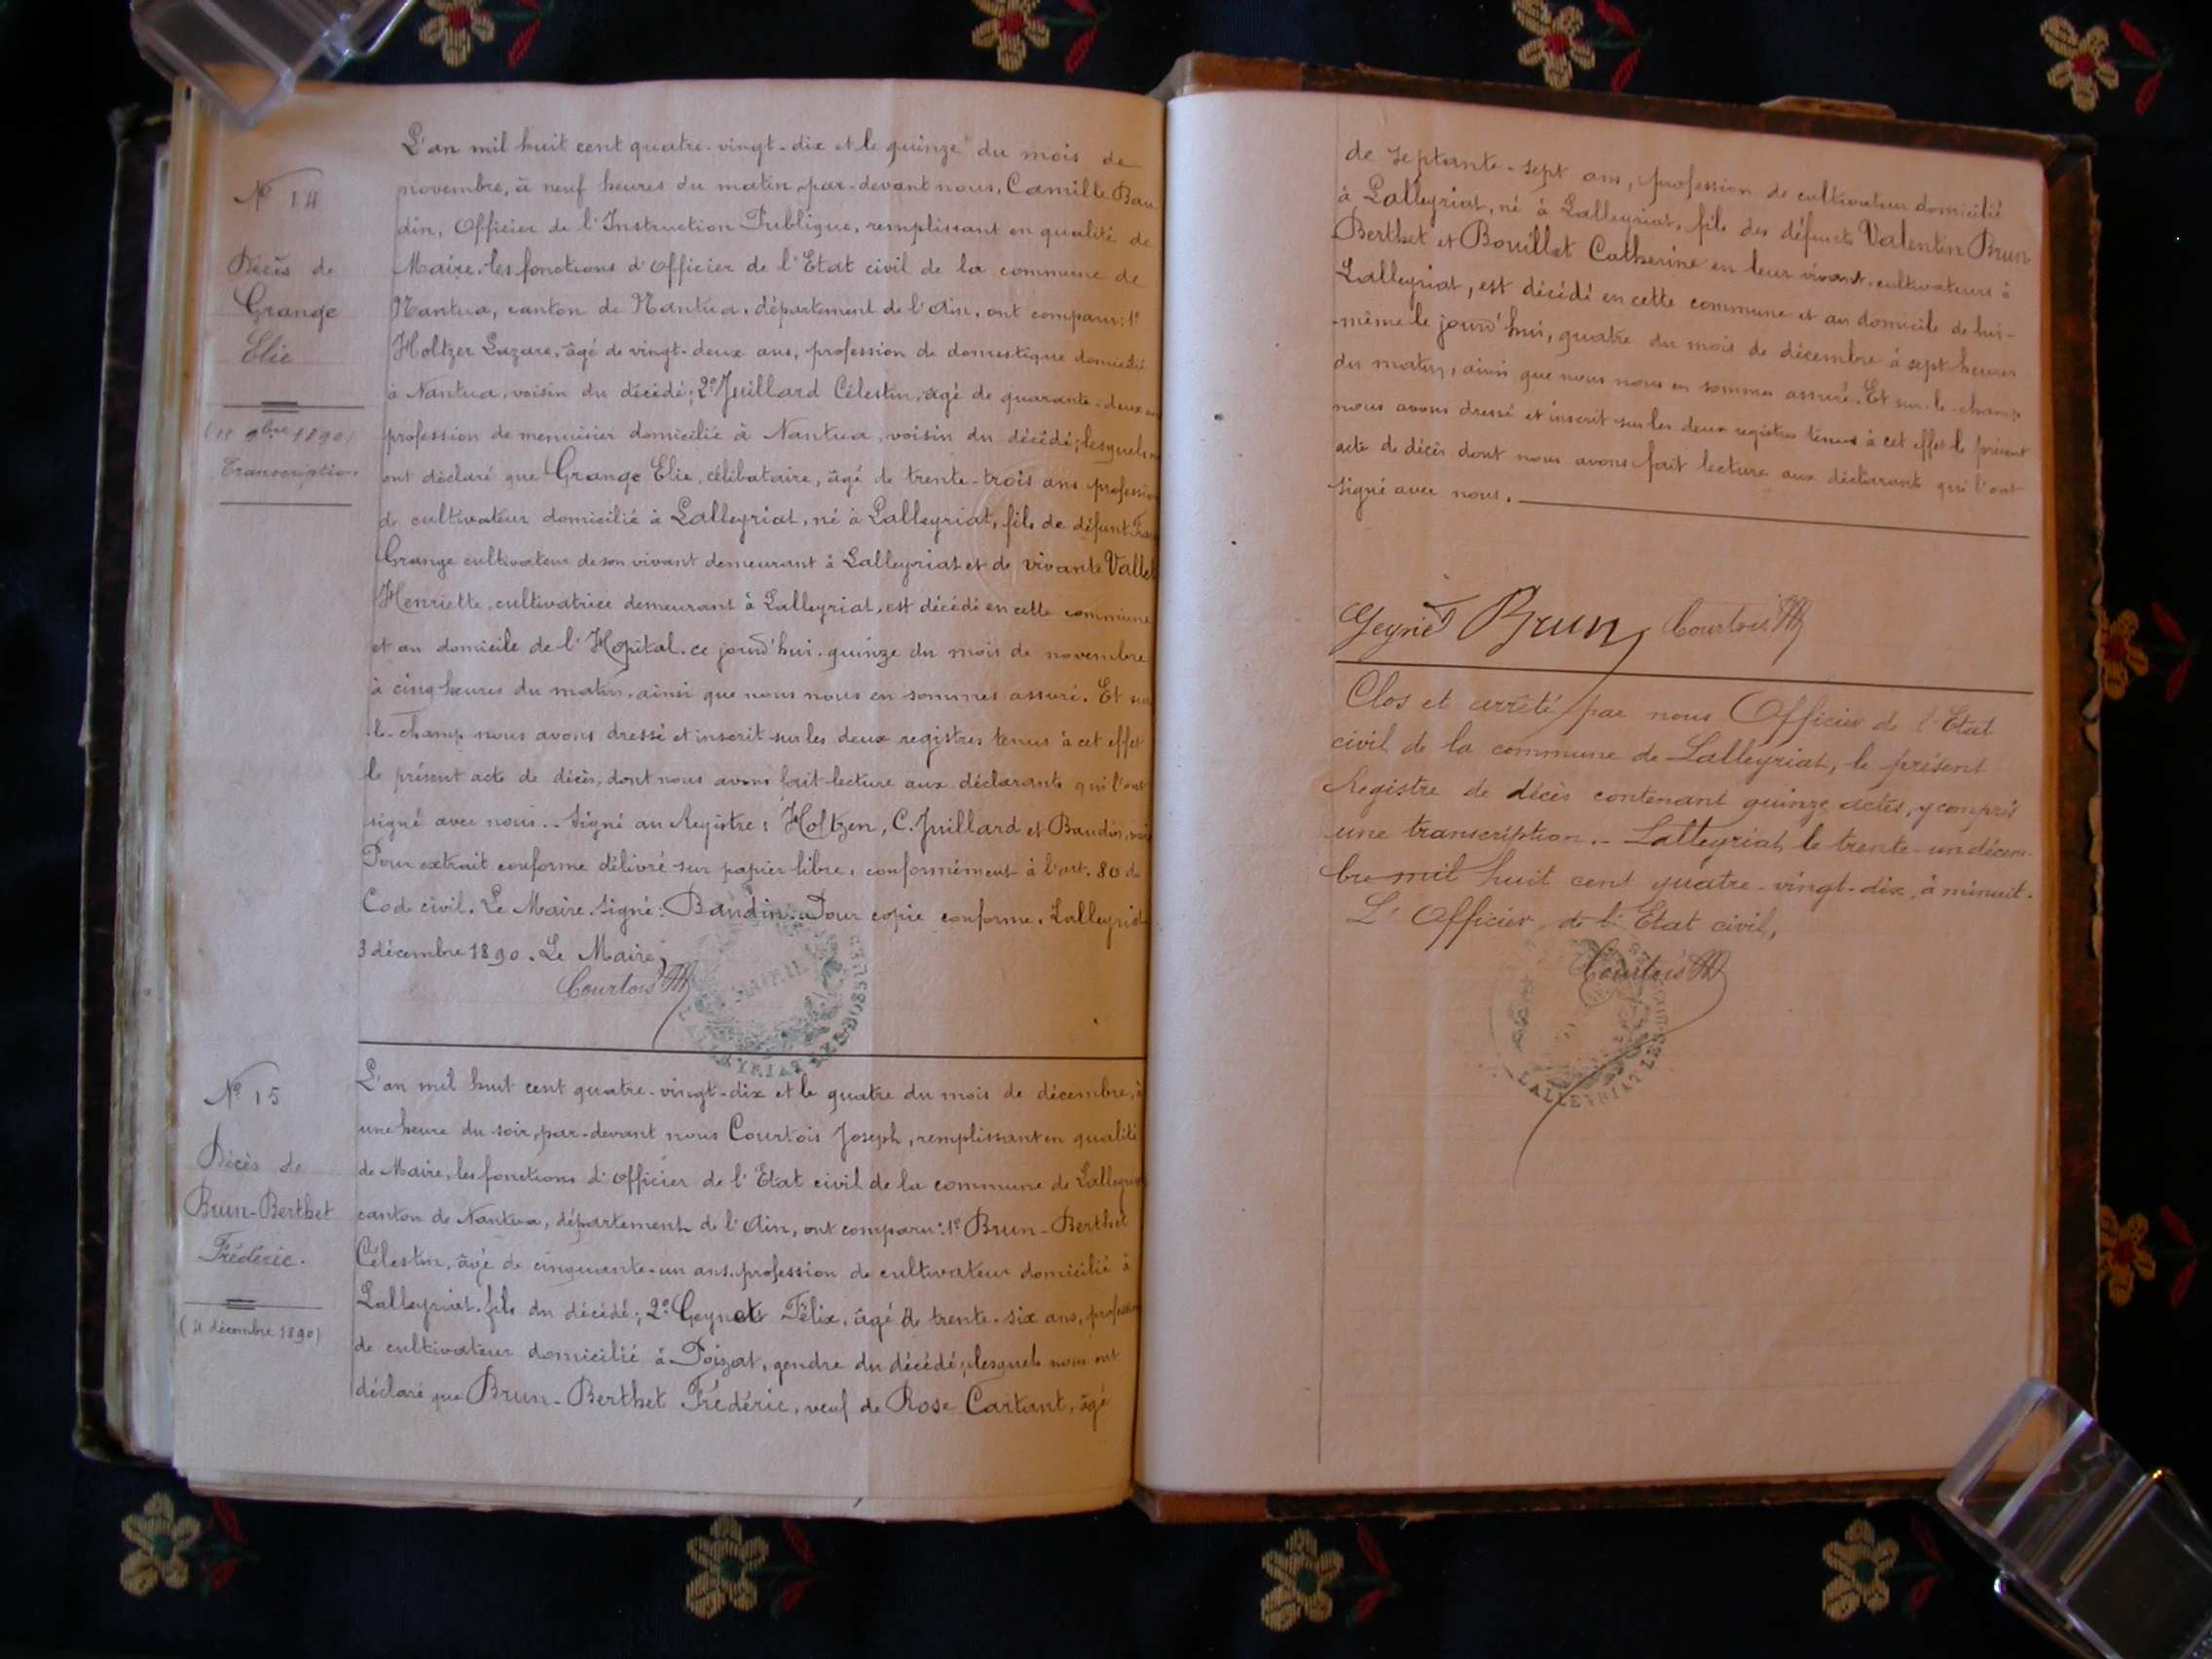 L'an mil huit cent quatre-vingt-dix et le quinze du mois de
novembre, à neuf heures du matin, par-devant nous, Camille Bau
din, Officier de l'Instruction Publique, remplissant en qualité de
Maire, les fonctions d'Officier de l'Etat civil de la commune de
Nantua, canton de Nantua, département de l'Ain, ont comparu: 1°
Holtzer Lazare, âgé de vingt-deux ans, profession de domestique domicilié
à Nantua, voisin du décédé; 2° Juillard Célestin, âgé de quarante-deux ans
profession de menuisier domicilié à Nantua, voisin du décédé; lesquels
ont déclaré que Grange Elie, célibataire, âgé de trente-trois ans profession
de cultivateur domicilié à Lalleyriat, né à Lalleyriat, fils de défunt
Grange cultivateur de son vivant demeurant à Lalleyriat et de vivante Vallet
Henriette, cultivatrice demeurant à Lalleyriat, est décédé en cette commune
et au domicile de l'Hopital. ce jourd'hui. quinze du mois de novembre
à cinq heures du matin, ainsi que nous nous en sommes assuré. Et sur
le-champ nous avons dressé et inscrit sur les deux registres tenus à cet effet
le présent acte de décès, dont nous avons fait lecture aux déclarants qui l'ont
signé avec nous.. Signé au Registre: Holtzen, C. Juillard et Baudin,
Pour extrait conforme délivré sur papier libre, conformément à l'art. 80 du
Code civil. Le Maire. Signé: Baudin. Pour copie conforme. Lalleyriat
3 décembre 1890. Le Maire,
Courtois
N° 14
Décès de
Grange
Elie
9bre 1890)
Transcription
N° 15
Décès de
Brun-Berthet
Frédéric.
(4 décembre 1890)
L'an mil huit cent quatre-vingt-dix et le quatre du mois de décembre, à
une heure du soir, par-devant nous Courtois Joseph, remplissant en qualité
de Maire, les fonctions d'Officier de l'Etat civil de la commune de Lalleyriat
canton de Nantua, département de l'Ain, ont comparu: 1° Brun-Berthet
Célestin, âgé de cinquante-un ans, profession de cultivateur domicilié à
Lalleyriat. fils du décédé; 2° Geynet Félix, âgé de trente-six ans, profession
de cultivateur domicilié à Poizat, gendre du décédé; lesquels nous ont
déclaré que Brun-Berthet Frédéric, veuf de Rose Cartant, âgé
de septante-sept ans, profession de cultivateur domicilié
à Lalleyriat, né à Lalleyriat, fils des défunts Valentin Brun
Berthet et Bouillet Catherine en leur vivant, cultivateurs à
Lalleyriat, est décédé en cette commune et au domicile de lui-
-même le jourd'hui, quatre du mois de décembre à sept heures
du matin, ainsi que nous nous en sommes assuré. Et sur-le-champ
nous avons dressé et inscrit sur les deux registres tenus à cet effet le présent
acte de décès dont nous avons fait lecture aux déclarants qui l'ont
signé avec nous.
Geynet Brun Courtois
Clos et arrêté par nous Officier de l'Etat
civil de la commune de Lalleyriat, le présent
Registre de décès contenant quinze actes, y compris
une transcription.- Lalleyriat, le trente-un décem-
bre mil huit cent quatre-vingt-dix, à minuit.
L'Officier de l'Etat civil,
Courtois
LALLEYRIAT LES